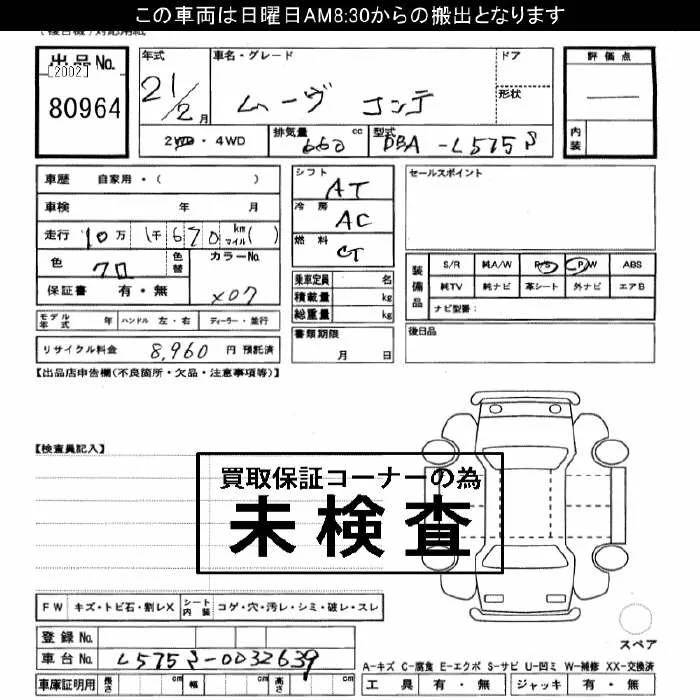 この車両は日曜日AM8:30からの搬出となります
出品No.
[2002]
80964
年式
21/2月
車名・グレード
ムーヴ コンテ
ドア
形状
2WD・4WD
排気量 660 cc
型式 DBA-L575S
評価点
内装
車歴 自家用・( )
車検 年 月
走行 10万 1千 670 km マイル( )
色 クロ
色替
カラーNo. X07
保証書 有・無
モデル年式 年 ハンドル 左・右 ディーラー・並行
リサイクル料金 8,960 円 預託済
シフト AT
冷房 AC
燃料
乗車定員 名
積載量 kg
総重量 kg
書類期限
月 日
セールスポイント
装備品
S/R 純A/W P/S P/W ABS
純TV 純ナビ 革シート 外ナビ エアB
ナビ型番:
後日品
【出品店申告欄(不良箇所・欠品・注意事項等)】
【検査員記入】
買取保証コーナーの為
未検査
FW キズ・トビ石・割レX シート内装 コゲ・穴・汚レ・シミ・破レ・スレ
登録No.
車台No. L575S-0032639
車庫証明用 長さ cm 幅 cm 高さ cm
スペア
A-キズ C-腐食 E-エクボ S-サビ U-凹ミ W-補修 XX-交換済
工具 有・無 ジャッキ 有・無